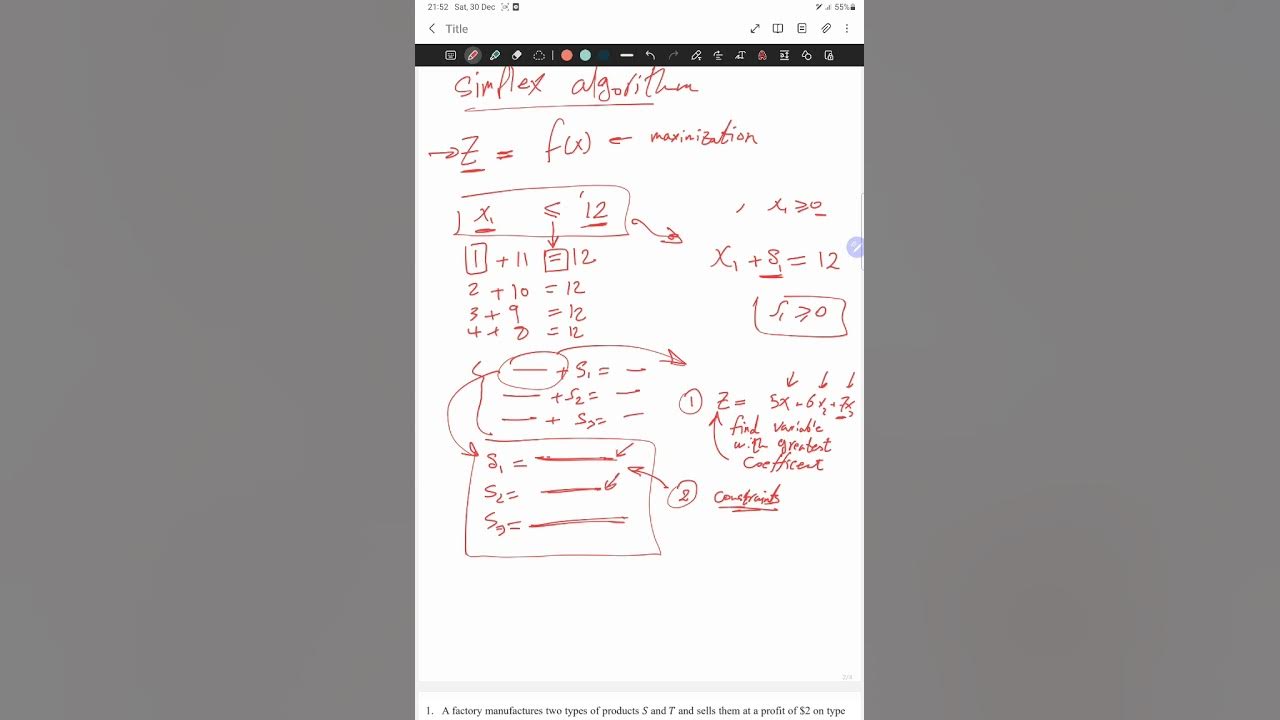 21:52 Sat, 30 Dec 55%
Title
simplex algorithm
→ Z = f(x) ← maximization
x₁ ≤ 12 , x₁ ≥ 0
1 + 11 = 12 x₁ + S₁ = 12
2 + 10 = 12
3 + 9 = 12 S₁ ≥ 0
4 + 8 = 12
— + S₁ = —
— + S₂ = — ① Z = 5x + 6x₂ + 7x₃
— + S₃ = — find variable
with greatest
S₁ = — coefficent
S₂ = — ② constraints
S₃ = —
2/4
1. A factory manufactures two types of products S and T and sells them at a profit of $2 on type